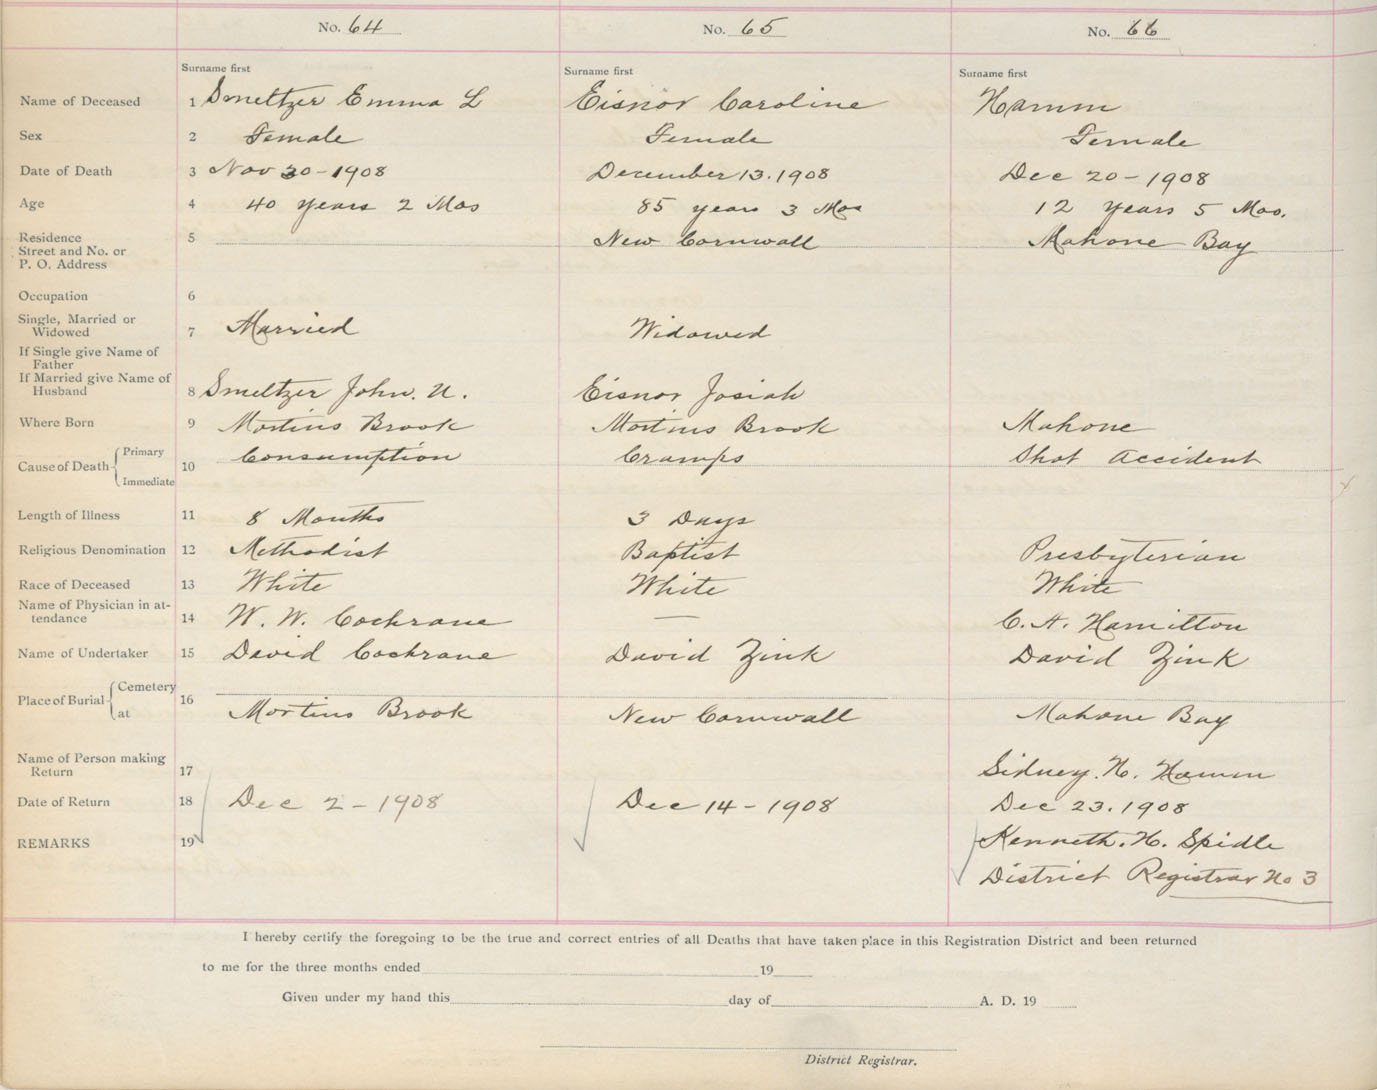 No. 64 No. 65 No. 66
Surname first Surname first Surname first
Name of Deceased 1 Smeltzer Emma L Eisnor Caroline Hamm
Sex 2 Female Female Female
Date of Death 3 Nov 30 - 1908 December 13. 1908 Dec 20 - 1908
Age 4 40 years 2 Mos 85 years 3 Mos 12 years 5 Mos.
Residence 5 New Cornwall Mahone Bay
Street and No. or
P. O. Address
Occupation 6
Single, Married or
Widowed 7 Married Widowed
If Single give Name of
Father
If Married give Name of
Husband 8 Smeltzer John. U. Eisnor Josiah
Where Born 9 Martins Brook Martins Brook Mahone
Cause of Death { Primary 10 Consumption Cramps Shot accident
Immediate
Length of Illness 11 8 Months 3 Days
Religious Denomination 12 Methodist Baptist Presbyterian
Race of Deceased 13 White White White
Name of Physician in at-
tendance 14 W. W. Cochrane — C. A. Hamilton
Name of Undertaker 15 David Cochrane David Zink David Zink
Place of Burial { Cemetery 16
at Martins Brook New Cornwall Mahone Bay
Name of Person making
Return 17 Sidney. H. Hamm
Date of Return 18 Dec 2 - 1908 Dec 14 - 1908 Dec 23. 1908
REMARKS 19 Kenneth. H. Spidle
District Registrar No 3
I hereby certify the foregoing to be the true and correct entries of all Deaths that have taken place in this Registration District and been returned
to me for the three months ended 19
Given under my hand this day of A. D. 19
District Registrar.